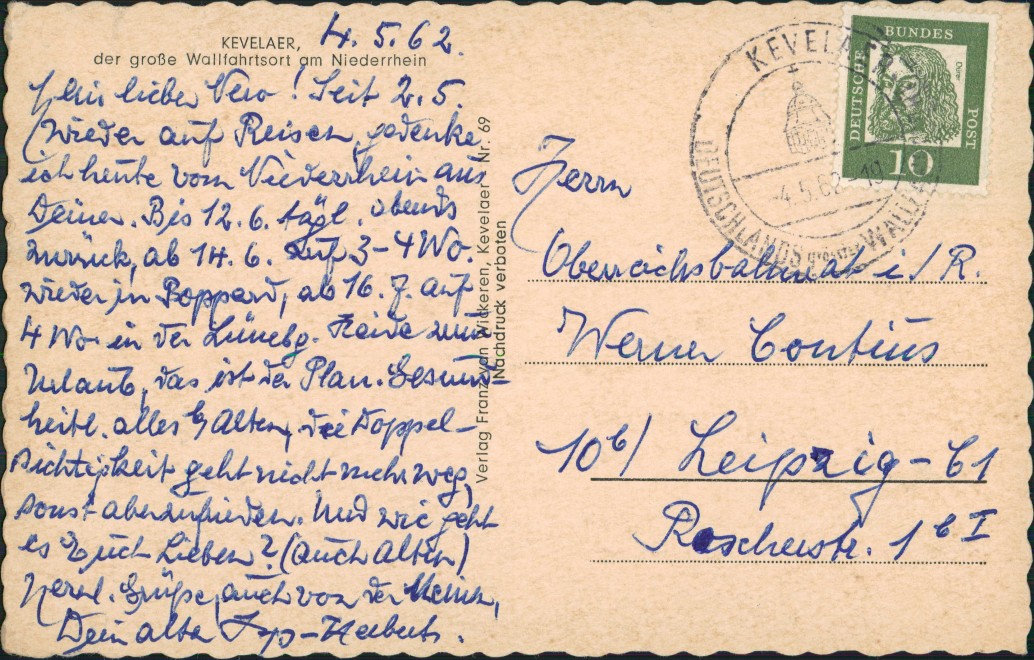 4.5.62.
KEVELAER,
der große Wallfahrtsort am Niederrhein
Mein lieber Vero! Seit 2.5.
wieder auf Reisen, gedenke
ich heute vom Niederrhein aus
Deiner. Bis 12.6. tägl. abends
zurück, ab 14.6. auf 3-4 Wo.
wieder in Boppard, ab 16.7. auf
4 Wo. in der Lünebg. Heide zum
Urlaub, das ist der Plan. Gesund-
heitl. alles b. Alten, die Doppel-
sichtigkeit geht nicht mehr weg,
sonst aber zufrieden. Und wie geht
es Euch Lieben? (auch Alten)
Herzl. Grüße, auch von der Meinen,
Dein alter -Herbert.
Verlag Franz van Wickeren, Kevelaer Nr. 69
Nachdruck verboten
KEVELAER
-4.5.62-19
DEUTSCHLANDS GRÖSSTER WALLF
DEUTSCHE
BUNDES
POST
Dürer
10
Herrn
Oberreichsbahnrat i/R.
Werner Contius
10b/ Leipzig-C1
Roscherstr. 1 b I